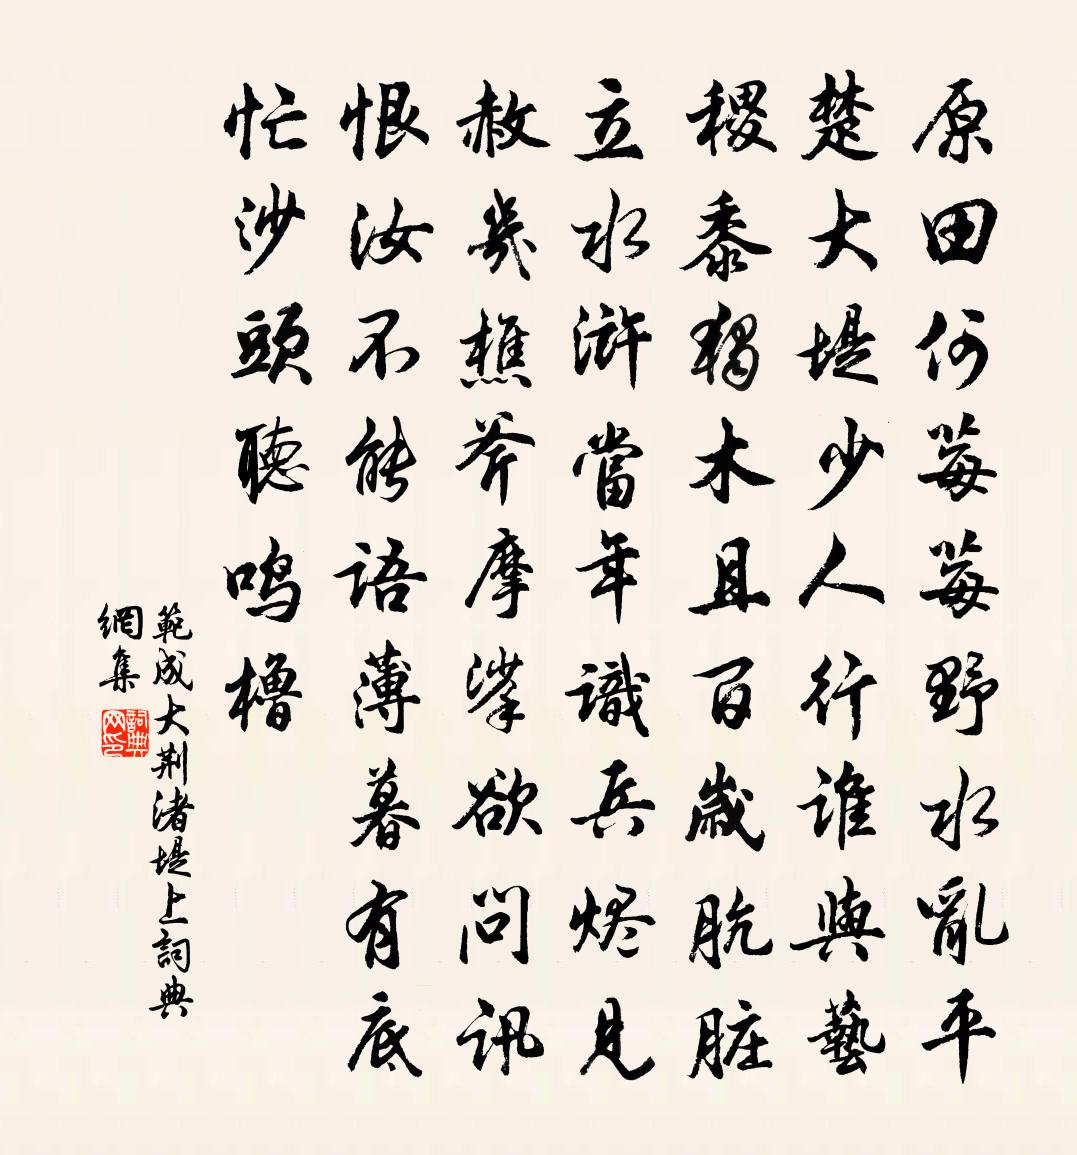 原田何莓莓野水亂平
楚大堤少人行誰與藝
稷黍獨木且百歲肮脏
立水滸當年識兵烬見
赦幾樵斧摩挲欲問訊
恨汝不能語薄暮有底
忙沙頭聽鳴櫓
範成大荆渚堤上詞典
網集
詞典
网印